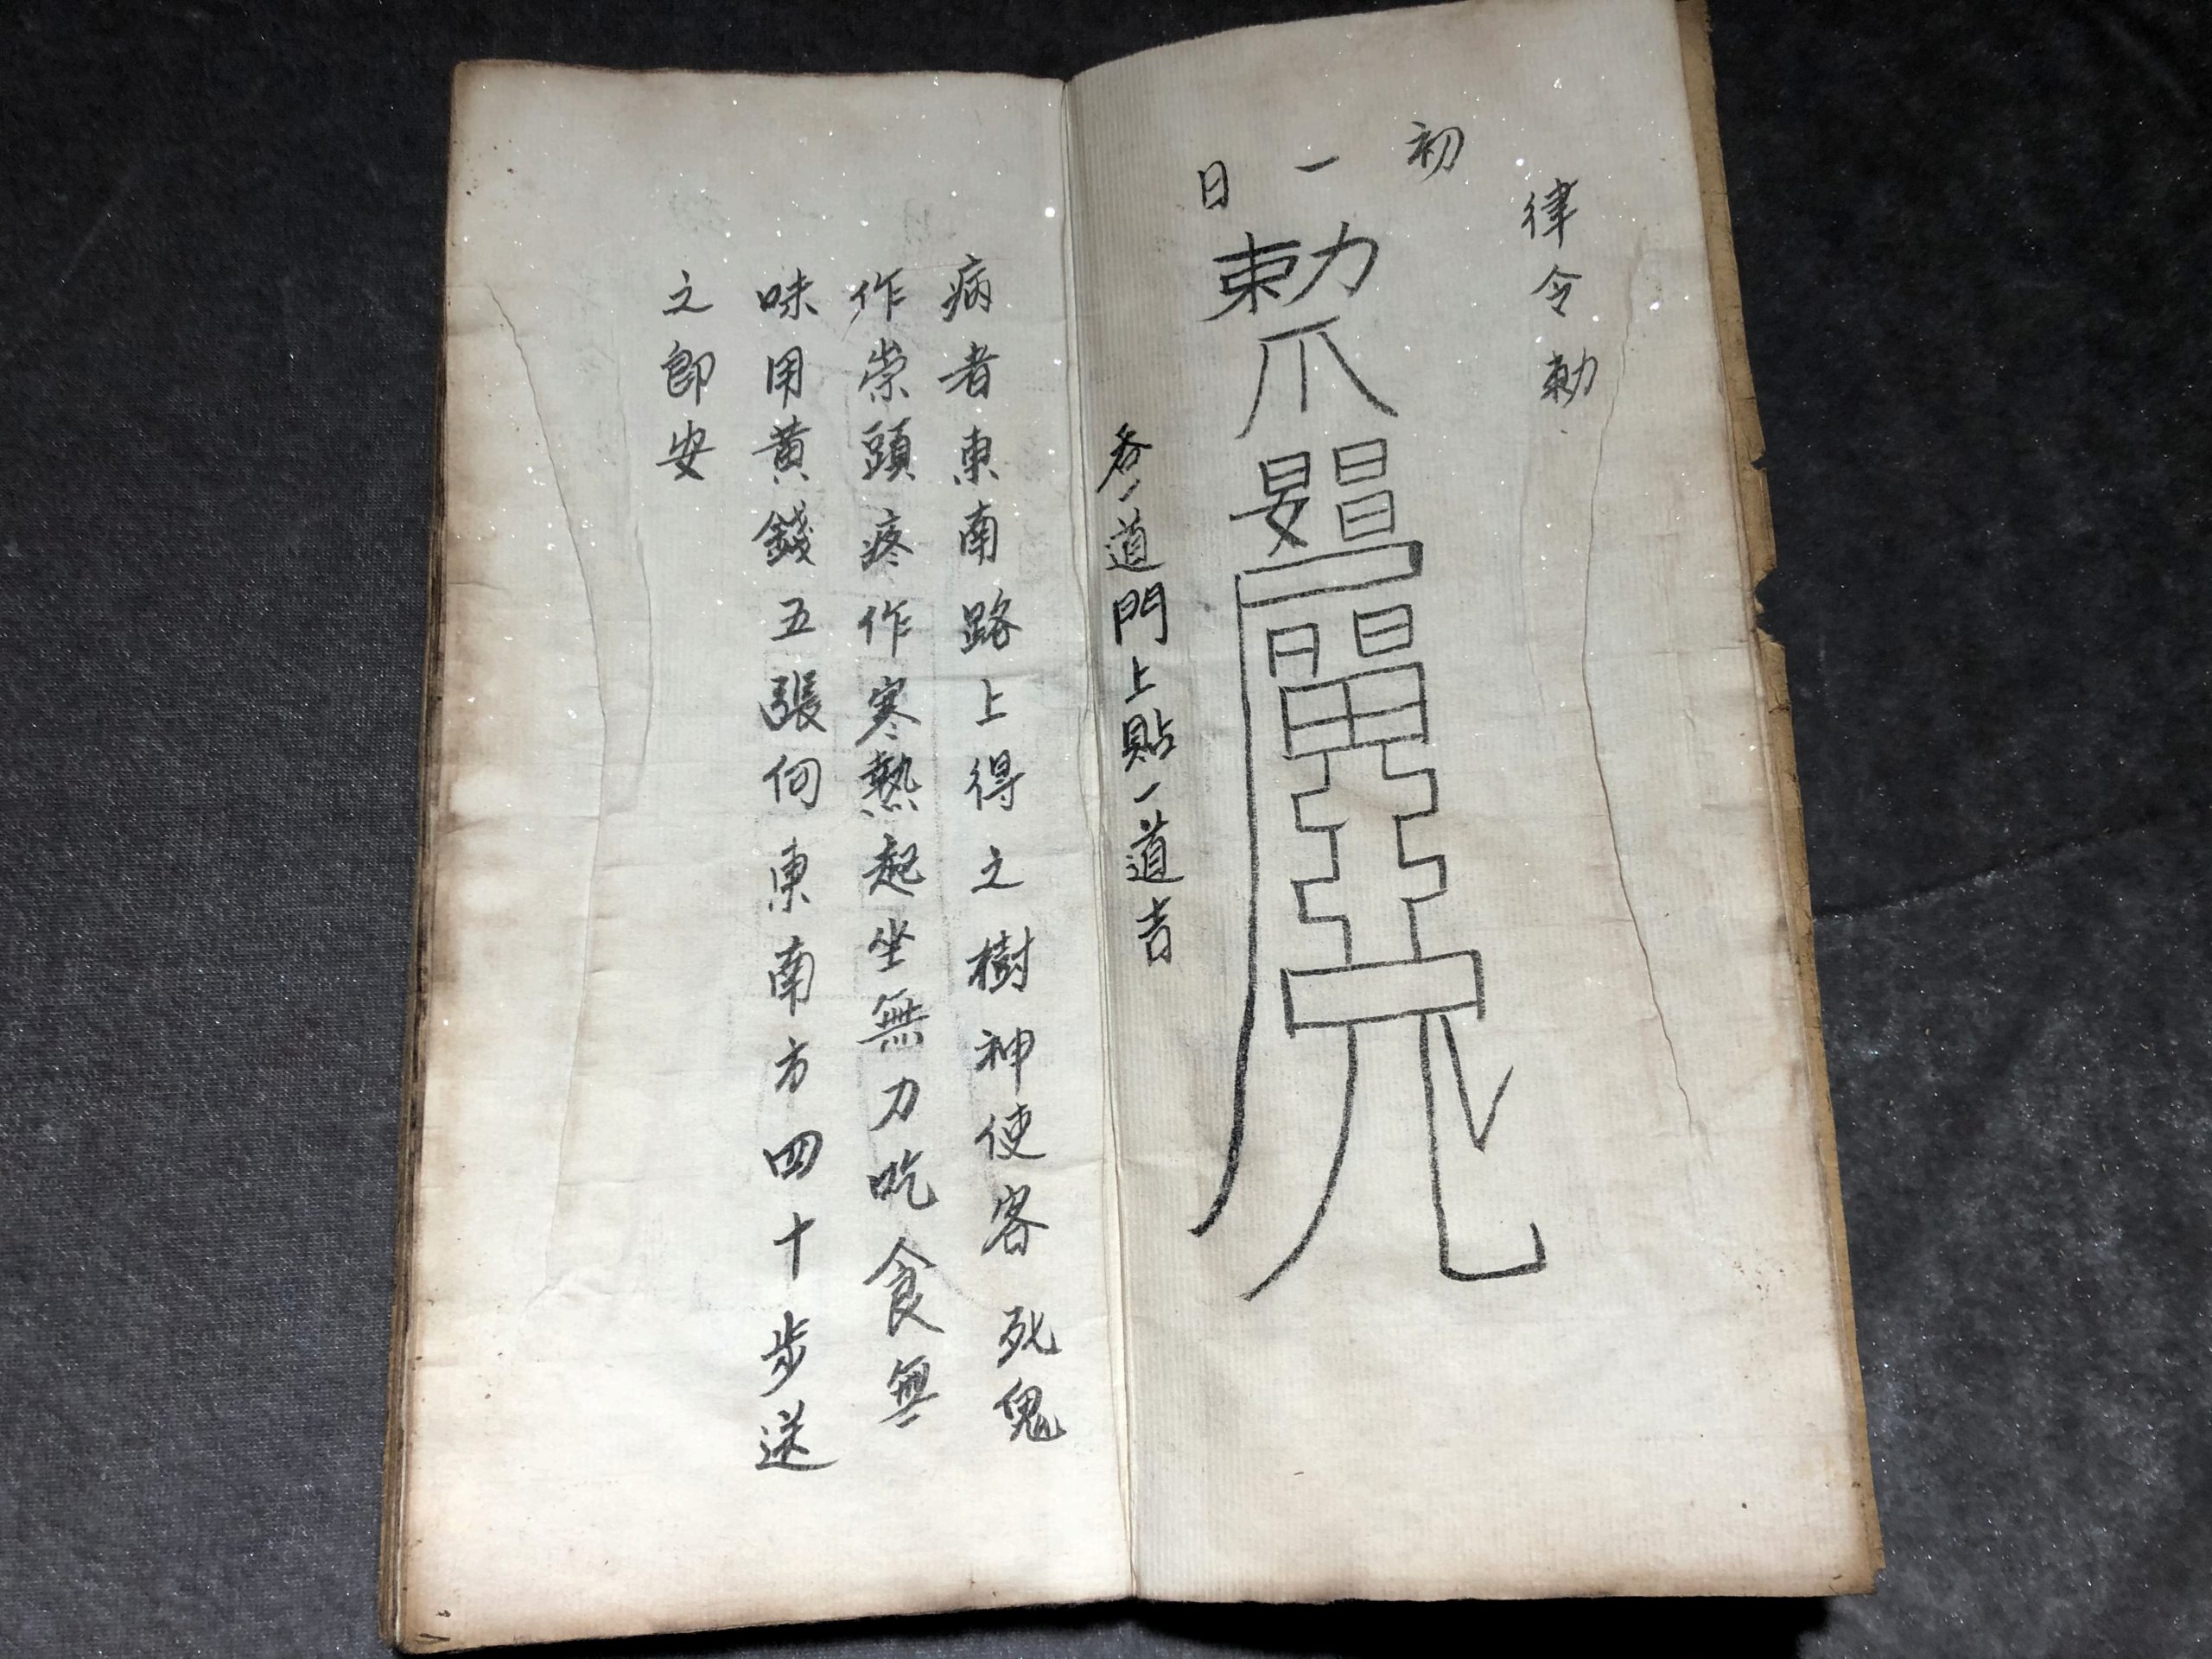 律令勅
初一日
勅
吞一道門上貼一道吉
病者東南路上得之樹神使客死鬼
作祟頭疼作寒熱起坐無力吃食無
味用黃錢五張向東南方四十步送
之即安